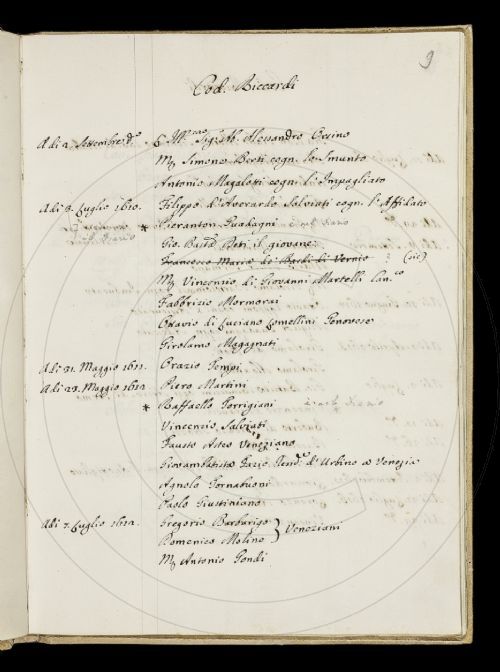 9
Cod. Riccardi
A di 2. Settembre d.o L' Ill. Sig. Ab. Alessandro Orsino
M. Simone Berti cogn. lo Smunto
Antonio Magalotti cogn. l'Impagliato
A di 8. Luglio 1610. Filippo d'Averardo Salviati cogn. l'Affidato
* Pieranton Guadagni
Gio. Bat.a Deti il giovane.
Francesco Maria de' Bardi di Vernio ? (sic)
M. Vincenzio di Giovanni Martelli Can.co
Fabbrizio Mormorai
Ottavio di Luciano Lomellini Genovese
Girolamo Magagnati
A di 31. Maggio 1611. Orazio Tempi
A di 23. Maggio 1612. Piero Martini
* Raffaello Torrigiani
Vincenzio Salviati
Fausto Veneziano
Giovambatista Fazio d'Urbino a Venezia
Agnolo Tornabuoni
Paolo Giustiniano
A di 7. Luglio 1612. Gregorio Barbarigo } Veneziani
Domenico Molino
M. Antonio Gondi